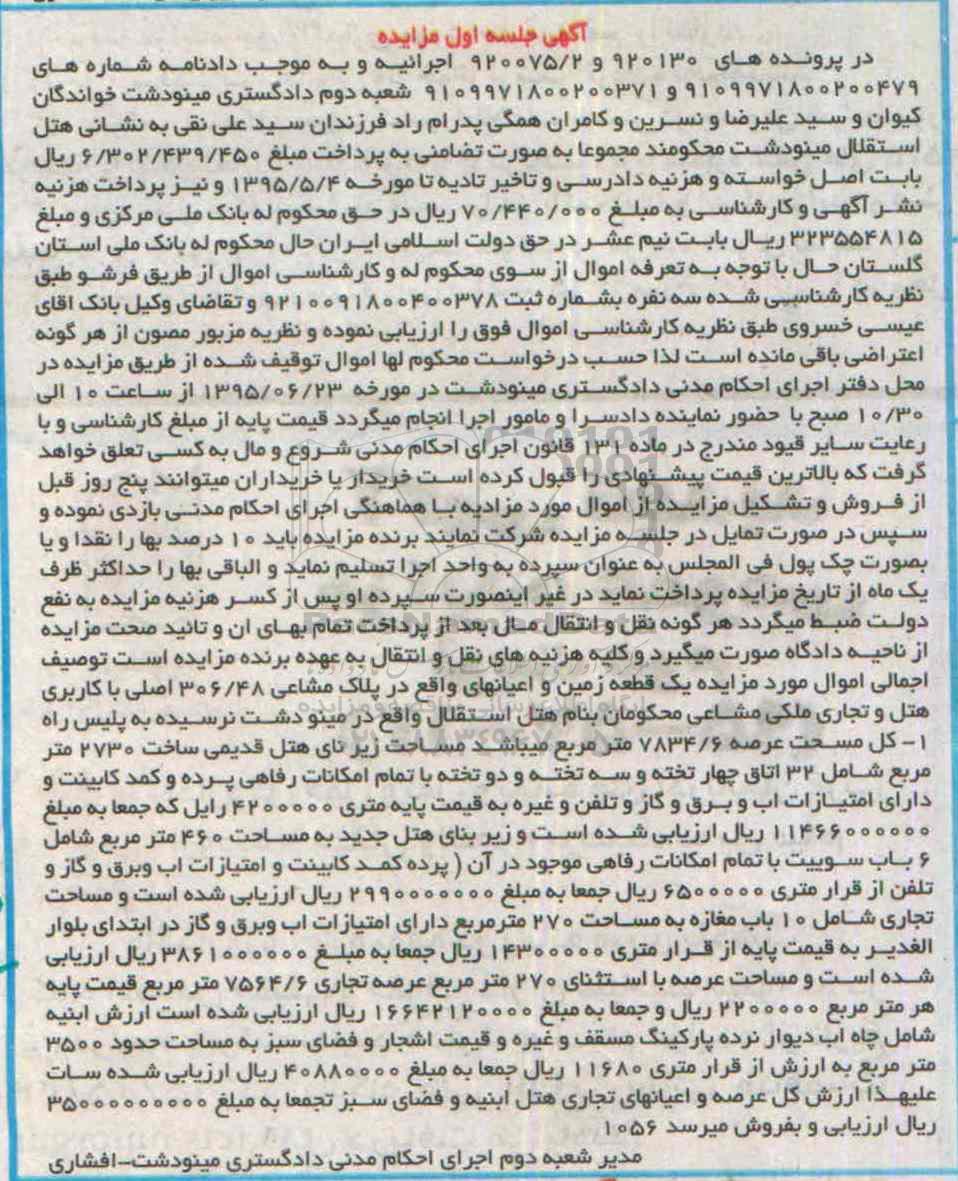 آگهی جلسه اول مزایده
در پرونده های ۹۲۰۱۳۰ و ۹۲۰۰۷۵/۲ اجرائیه و به موجب دادنامه شماره های
۹۱۰۹۹۷۱۸۰۰۲۰۰۴۷۹ و ۹۱۰۹۹۷۱۸۰۰۲۰۰۳۷۱ شعبه دوم دادگستری مینودشت خواندگان
کیوان و سید علیرضا و نسرین و کامران همگی پدرام راد فرزندان سید علی نقی به نشانی هتل
استقلال مینودشت محکومند مجموعا به صورت تضامنی به پرداخت مبلغ ۶/۳۰۲/۴۳۹/۴۵۰ ریال
بابت اصل خواسته و هزنیه دادرسی و تاخیر تادیه تا مورخه ۱۳۹۵/۵/۴ و نیز پرداخت هزنیه
نشر آگهی و کارشناسی به مبلغ ۷۰/۴۴۰/۰۰۰ ریال در حق محکوم له بانک ملی مرکزی و مبلغ
۳۲۳۵۵۴۸۱۵ ریال بابت نیم عشر در حق دولت اسلامی ایران حال محکوم له بانک ملی استان
گلستان حال با توجه به تعرفه اموال از سوی محکوم له و کارشناسی اموال از طریق فرشو طبق
نظریه کارشناسی شده سه نفره بشماره ثبت ۹۲۱۰۰۹۱۸۰۰۴۰۰۳۷۸ و تقاضای وکیل بانک اقای
عیسی خسروی طبق نظریه کارشناسی اموال فوق را ارزیابی نموده و نظریه مزبور مصون از هر گونه
اعتراضی باقی مانده است لذا حسب درخواست محکوم لها اموال توقیف شده از طریق مزایده در
محل دفتر اجرای احکام مدنی دادگستری مینودشت در مورخه ۱۳۹۵/۰۶/۲۳ از ساعت ۱۰ الی
۱۰/۳۰ صبح با حضور نماینده دادسرا و مامور اجرا انجام میگردد قیمت پایه از مبلغ کارشناسی و با
رعایت سایر قیود مندرج در ماده ۱۳۱ قانون اجرای احکام مدنی شروع و مال به کسی تعلق خواهد
گرفت که بالاترین قیمت پیشنهادی را قبول کرده است خریدار یا خریداران میتوانند پنج روز قبل
از فروش و تشکیل مزایده از اموال مورد مزادیه با هماهنگی اجرای احکام مدنی بازدی نموده و
سپس در صورت تمایل در جلسه مزایده شرکت نمایند برنده مزایده باید ۱۰ درصد بها را نقدا و یا
بصورت چک پول فی المجلس به عنوان سپرده به واحد اجرا تسلیم نماید و الباقی بها را حداکثر ظرف
یک ماه از تاریخ مزایده پرداخت نماید در غیر اینصورت سپرده او پس از کسر هزنیه مزایده به نفع
دولت ضبط میگردد هر گونه نقل و انتقال مال بعد از پرداخت تمام بهای ان و تائید صحت مزایده
از ناحیه دادگاه صورت میگیرد و کلیه هزنیه های نقل و انتقال به عهده برنده مزایده است توصیف
اجمالی اموال مورد مزایده یک قطعه زمین و اعیانهای واقع در پلاک مشاعی ۳۰۶/۴۸ اصلی با کاربری
هتل و تجاری ملکی مشاعی محکومان بنام هتل استقلال واقع در مینو دشت نرسیده به پلیس راه
۱- کل مسحت عرصه ۷۸۳۴/۶ متر مربع میباشد مساحت زیر نای هتل قدیمی ساخت ۲۷۳۰ متر
مربع شامل ۳۲ اتاق چهار تخته و سه تخته و دو تخته با تمام امکانات رفاهی پرده و کمد کابینت و
دارای امتیازات اب و برق و گاز و تلفن و غیره به قیمت پایه متری ۴۲۰۰۰۰۰ رایل که جمعا به مبلغ
۱۱۴۶۶۰۰۰۰۰۰ ریال ارزیابی شده است و زیر بنای هتل جدید به مساحت ۴۶۰ متر مربع شامل
۶ باب سوییت با تمام امکانات رفاهی موجود در آن ( پرده کمد کابینت و امتیازات اب وبرق و گاز و
تلفن از قرار متری ۶۵۰۰۰۰۰ ریال جمعا به مبلغ ۲۹۹۰۰۰۰۰۰۰ ریال ارزیابی شده است و مساحت
تجاری شامل ۱۰ باب مغازه به مساحت ۲۷۰ مترمربع دارای امتیازات اب وبرق و گاز در ابتدای بلوار
الغدیر به قیمت پایه از قرار متری ۱۴۳۰۰۰۰۰ ریال جمعا به مبلغ ۳۸۶۱۰۰۰۰۰۰ ریال ارزیابی
شده است و مساحت عرصه با استثنای ۲۷۰ متر مربع عرصه تجاری ۷۵۶۴/۶ متر مربع قیمت پایه
هر متر مربع ۲۲۰۰۰۰۰ ریال و جمعا به مبلغ ۱۶۶۴۲۱۲۰۰۰۰ ریال ارزیابی شده است ارزش ابنیه
شامل چاه اب دیوار نرده پارکینگ مسقف و غیره و قیمت اشجار و فضای سبز به مساحت حدود ۳۵۰۰
متر مربع به ارزش از قرار متری ۱۱۶۸۰ ریال جمعا به مبلغ ۴۰۸۸۰۰۰۰ ریال ارزیابی شده سات
علیهذا ارزش کل عرصه و اعیانهای تجاری هتل ابنیه و فضای سبز تجمعا به مبلغ ۳۵۰۰۰۰۰۰۰۰۰
ریال ارزیابی و بفروش میرسد ۱۰۵۶
مدیر شعبه دوم اجرای احکام مدنی دادگستری مینودشت-افشاری